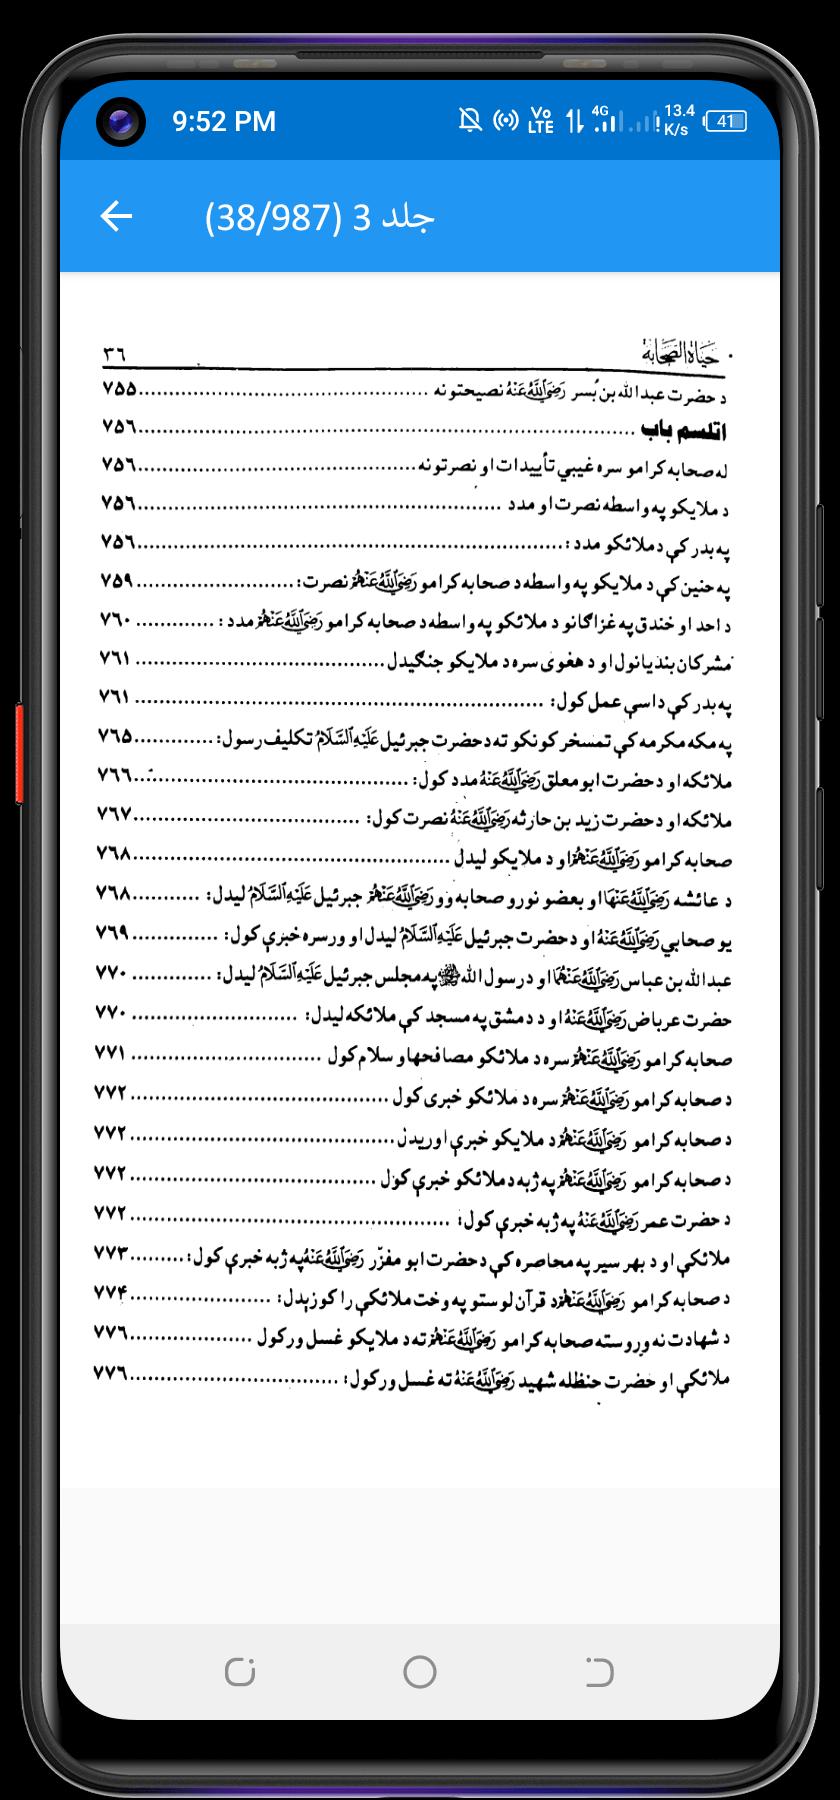 9:52 PM
Vo LTE 4G 13.4 K/s 41
جلد 3 (38/987)
حَيَاةُ الصَّحَابَة ٣٦
د حضرت عبدالله بن بُسر رَضِيَ اللَّهُ عَنْهُ نصيحتونه ........ ۷۵۵
اتلسم باب ........ ۷۵٦
له صحابه کرامو سره غيبي تأييدات او نصرتونه ........ ۷۵٦
د ملايکو په واسطه نصرت او مدد ........ ۷۵٦
په بدر کې د ملائکو مدد: ........ ۷۵٦
په حنين کې د ملايکو په واسطه د صحابه کرامو رَضِيَ اللَّهُ عَنْهُمْ نصرت: ........ ۷۵۹
د احد او خندق په غزاګانو د ملائکو په واسطه د صحابه کرامو رَضِيَ اللَّهُ عَنْهُمْ مدد: ........ ۷٦۰
مشرکان بنديانول او د هغوی سره د ملايکو جنګيدل ........ ۷٦۱
په بدر کې داسې عمل کول: ........ ۷٦۱
په مکه مکرمه کې تمسخر کونکو ته د حضرت جبرئيل عَلَيْهِ السَّلَامُ تکليف رسول: ........ ۷٦۵
ملائکه او د حضرت ابو معلق رَضِيَ اللَّهُ عَنْهُ مدد کول: ........ ۷٦٦
ملائکه او د حضرت زيد بن حارثه رَضِيَ اللَّهُ عَنْهُ نصرت کول: ........ ۷٦۷
صحابه کرامو رَضِيَ اللَّهُ عَنْهُمْ او د ملايکو ليدل ........ ۷٦۸
د عائشه رَضِيَ اللَّهُ عَنْهَا او بعضو نورو صحابه وو رَضِيَ اللَّهُ عَنْهُمْ جبرئيل عَلَيْهِ السَّلَامُ ليدل: ........ ۷٦۸
يو صحابي رَضِيَ اللَّهُ عَنْهُ او د حضرت جبرئيل عَلَيْهِ السَّلَامُ ليدل او ورسره خبرې کول: ........ ۷٦۹
عبدالله بن عباس رَضِيَ اللَّهُ عَنْهُمَا او د رسول الله ﷺ په مجلس جبرئيل عَلَيْهِ السَّلَامُ ليدل: ........ ۷۷۰
حضرت عرباض رَضِيَ اللَّهُ عَنْهُ او د دمشق په مسجد کې ملائکه ليدل: ........ ۷۷۰
صحابه کرامو رَضِيَ اللَّهُ عَنْهُمْ سره د ملائکو مصافحها و سلام کول ........ ۷۷۱
د صحابه کرامو رَضِيَ اللَّهُ عَنْهُمْ سره د ملائکو خبری کول ........ ۷۷۲
د صحابه کرامو رَضِيَ اللَّهُ عَنْهُمْ د ملايکو خبرې اوريدل ........ ۷۷۲
د صحابه کرامو رَضِيَ اللَّهُ عَنْهُمْ په ژبه د ملائکو خبرې کول ........ ۷۷۲
د حضرت عمر رَضِيَ اللَّهُ عَنْهُ په ژبه خبرې کول: ........ ۷۷۲
ملائکې او د بهر سير په محاصره کې د حضرت ابو مفزّر رَضِيَ اللَّهُ عَنْهُ په ژبه خبرې کول: ........ ۷۷۳
د صحابه کرامو رَضِيَ اللَّهُ عَنْهُمْ د قرآن لوستو په وخت ملائکې را کوزېدل: ........ ۷۷۴
د شهادت نه وروسته صحابه کرامو رَضِيَ اللَّهُ عَنْهُمْ ته د ملايکو غسل ورکول ........ ۷۷٦
ملائکې او حضرت حنظله شهيد رَضِيَ اللَّهُ عَنْهُ ته غسل ورکول: ........ ۷۷٦